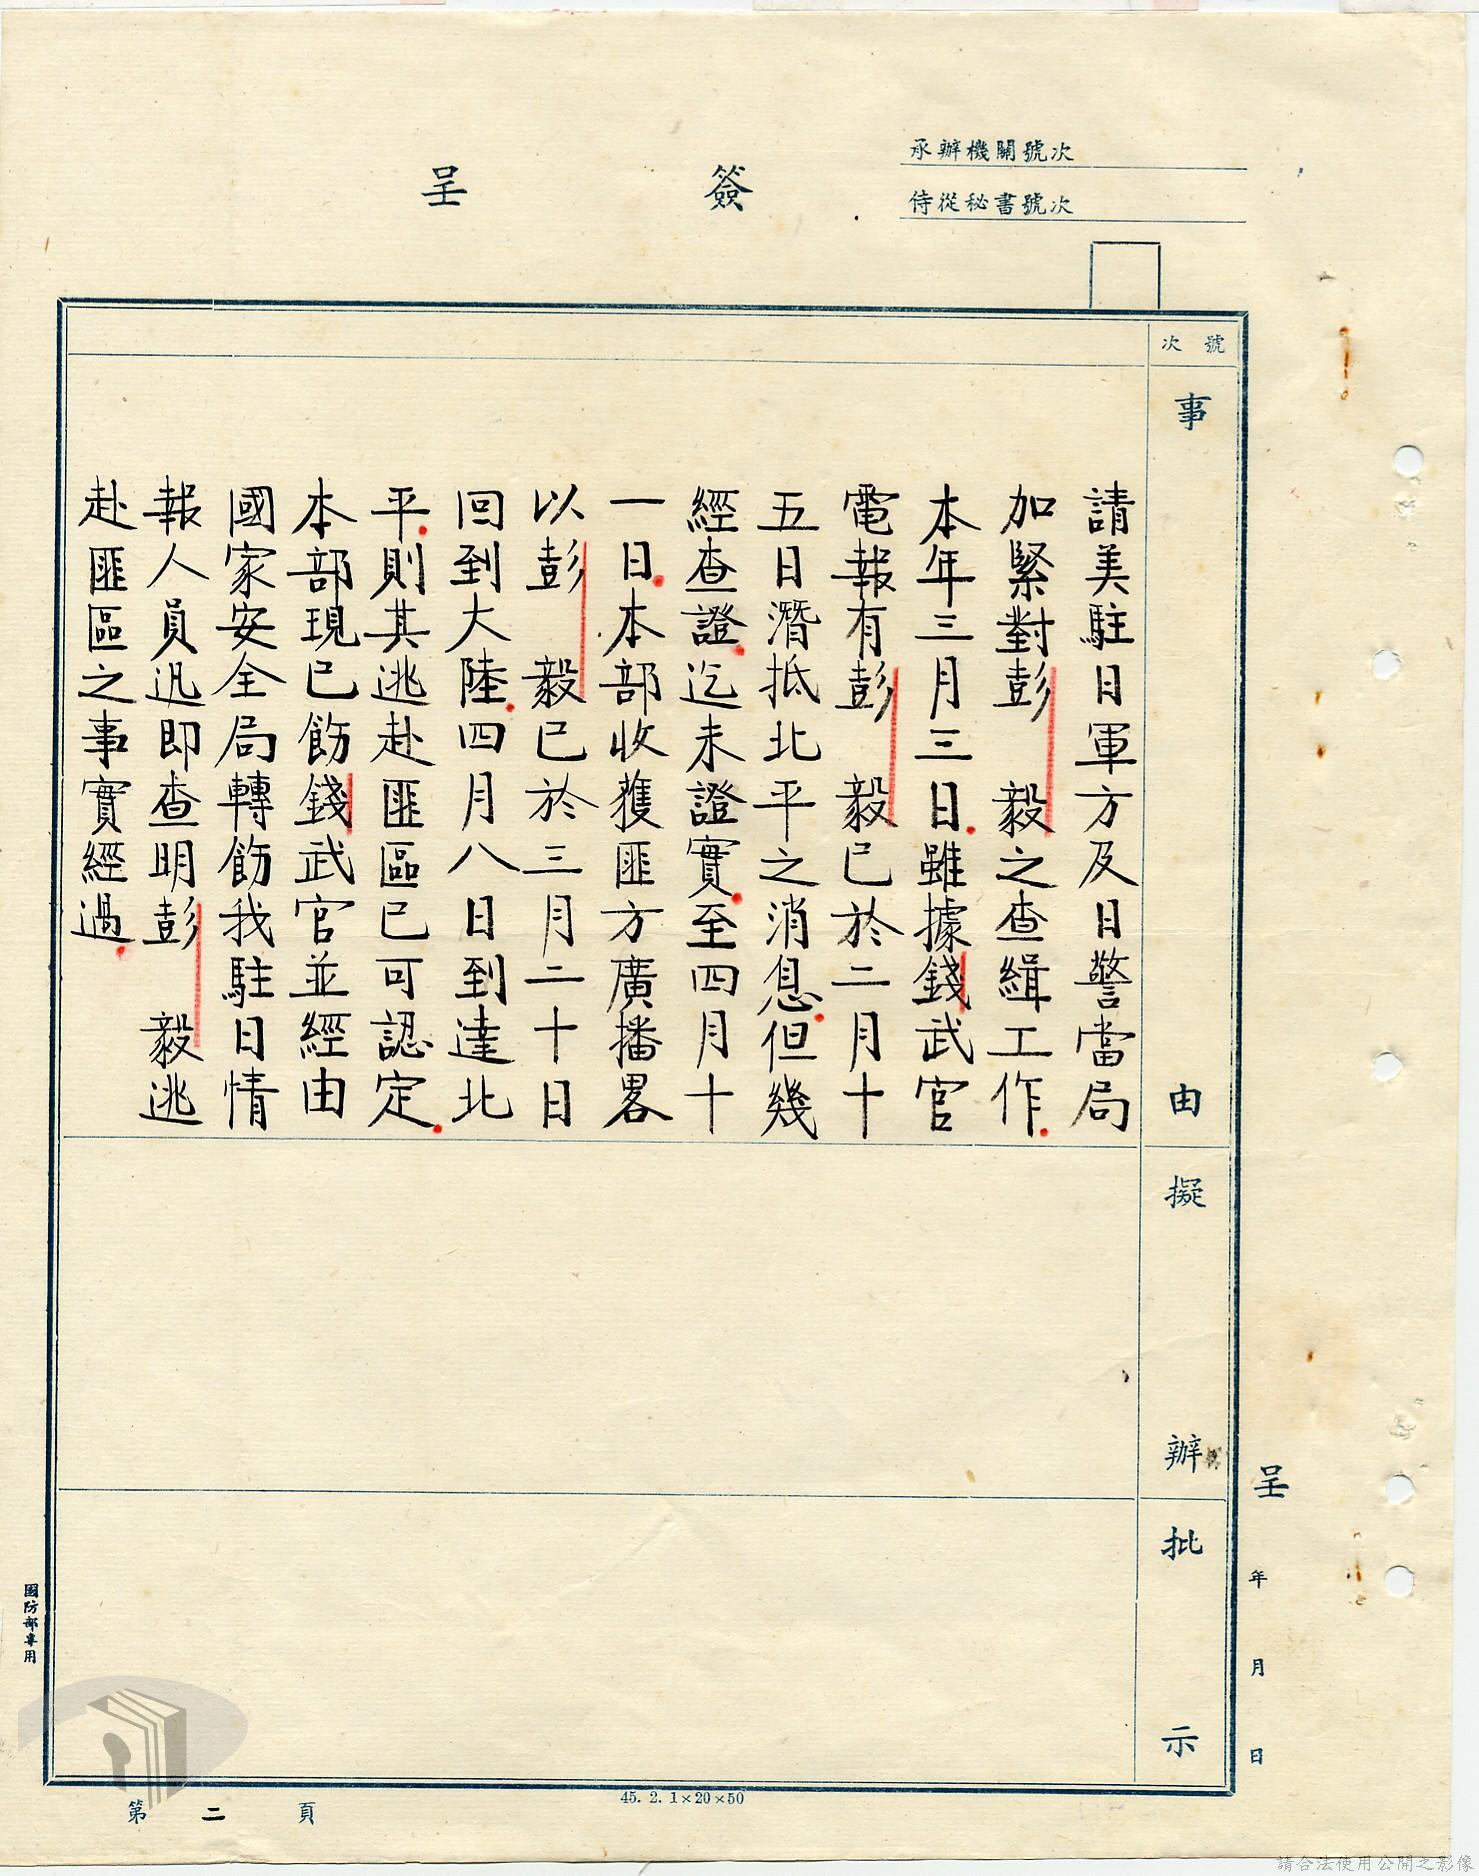 簽呈
承辦機關號次
侍從秘書號次
號次
事由
擬辦
批示
請美駐日軍方及日警當局
加緊對彭　毅之查緝工作.
本年三月三日.雖據錢武官
電報有彭　毅已於二月十
五日潛抵北平之消息.但幾
經查證.迄未證實.至四月十
一日.本部收獲匪方廣播畧
以彭　毅已於三月二十日
回到大陸.四月八日到達北
平.則其逃赴匪區已可認定.
本部現已飭錢武官並經由
國家安全局轉飭我駐日情
報人員迅即查明彭　毅逃
赴匪區之事實經過.
呈　年　月　日
國防部專用
第二頁
45. 2. 1×20×50
請合法使用公開之影像